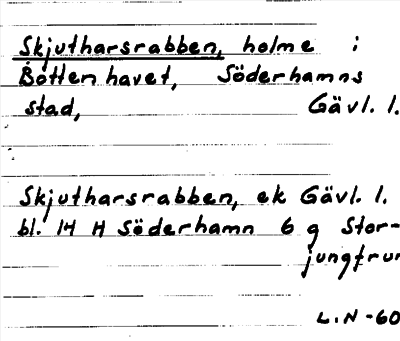 Skjutharsrabben, holme i
Bottenhavet, Söderhamns
stad, Gävl. l.
Skjutharsrabben, ek Gävl. l.
bl. 14 H Söderhamn 6 g Stor-
jungfrun
L.N-60